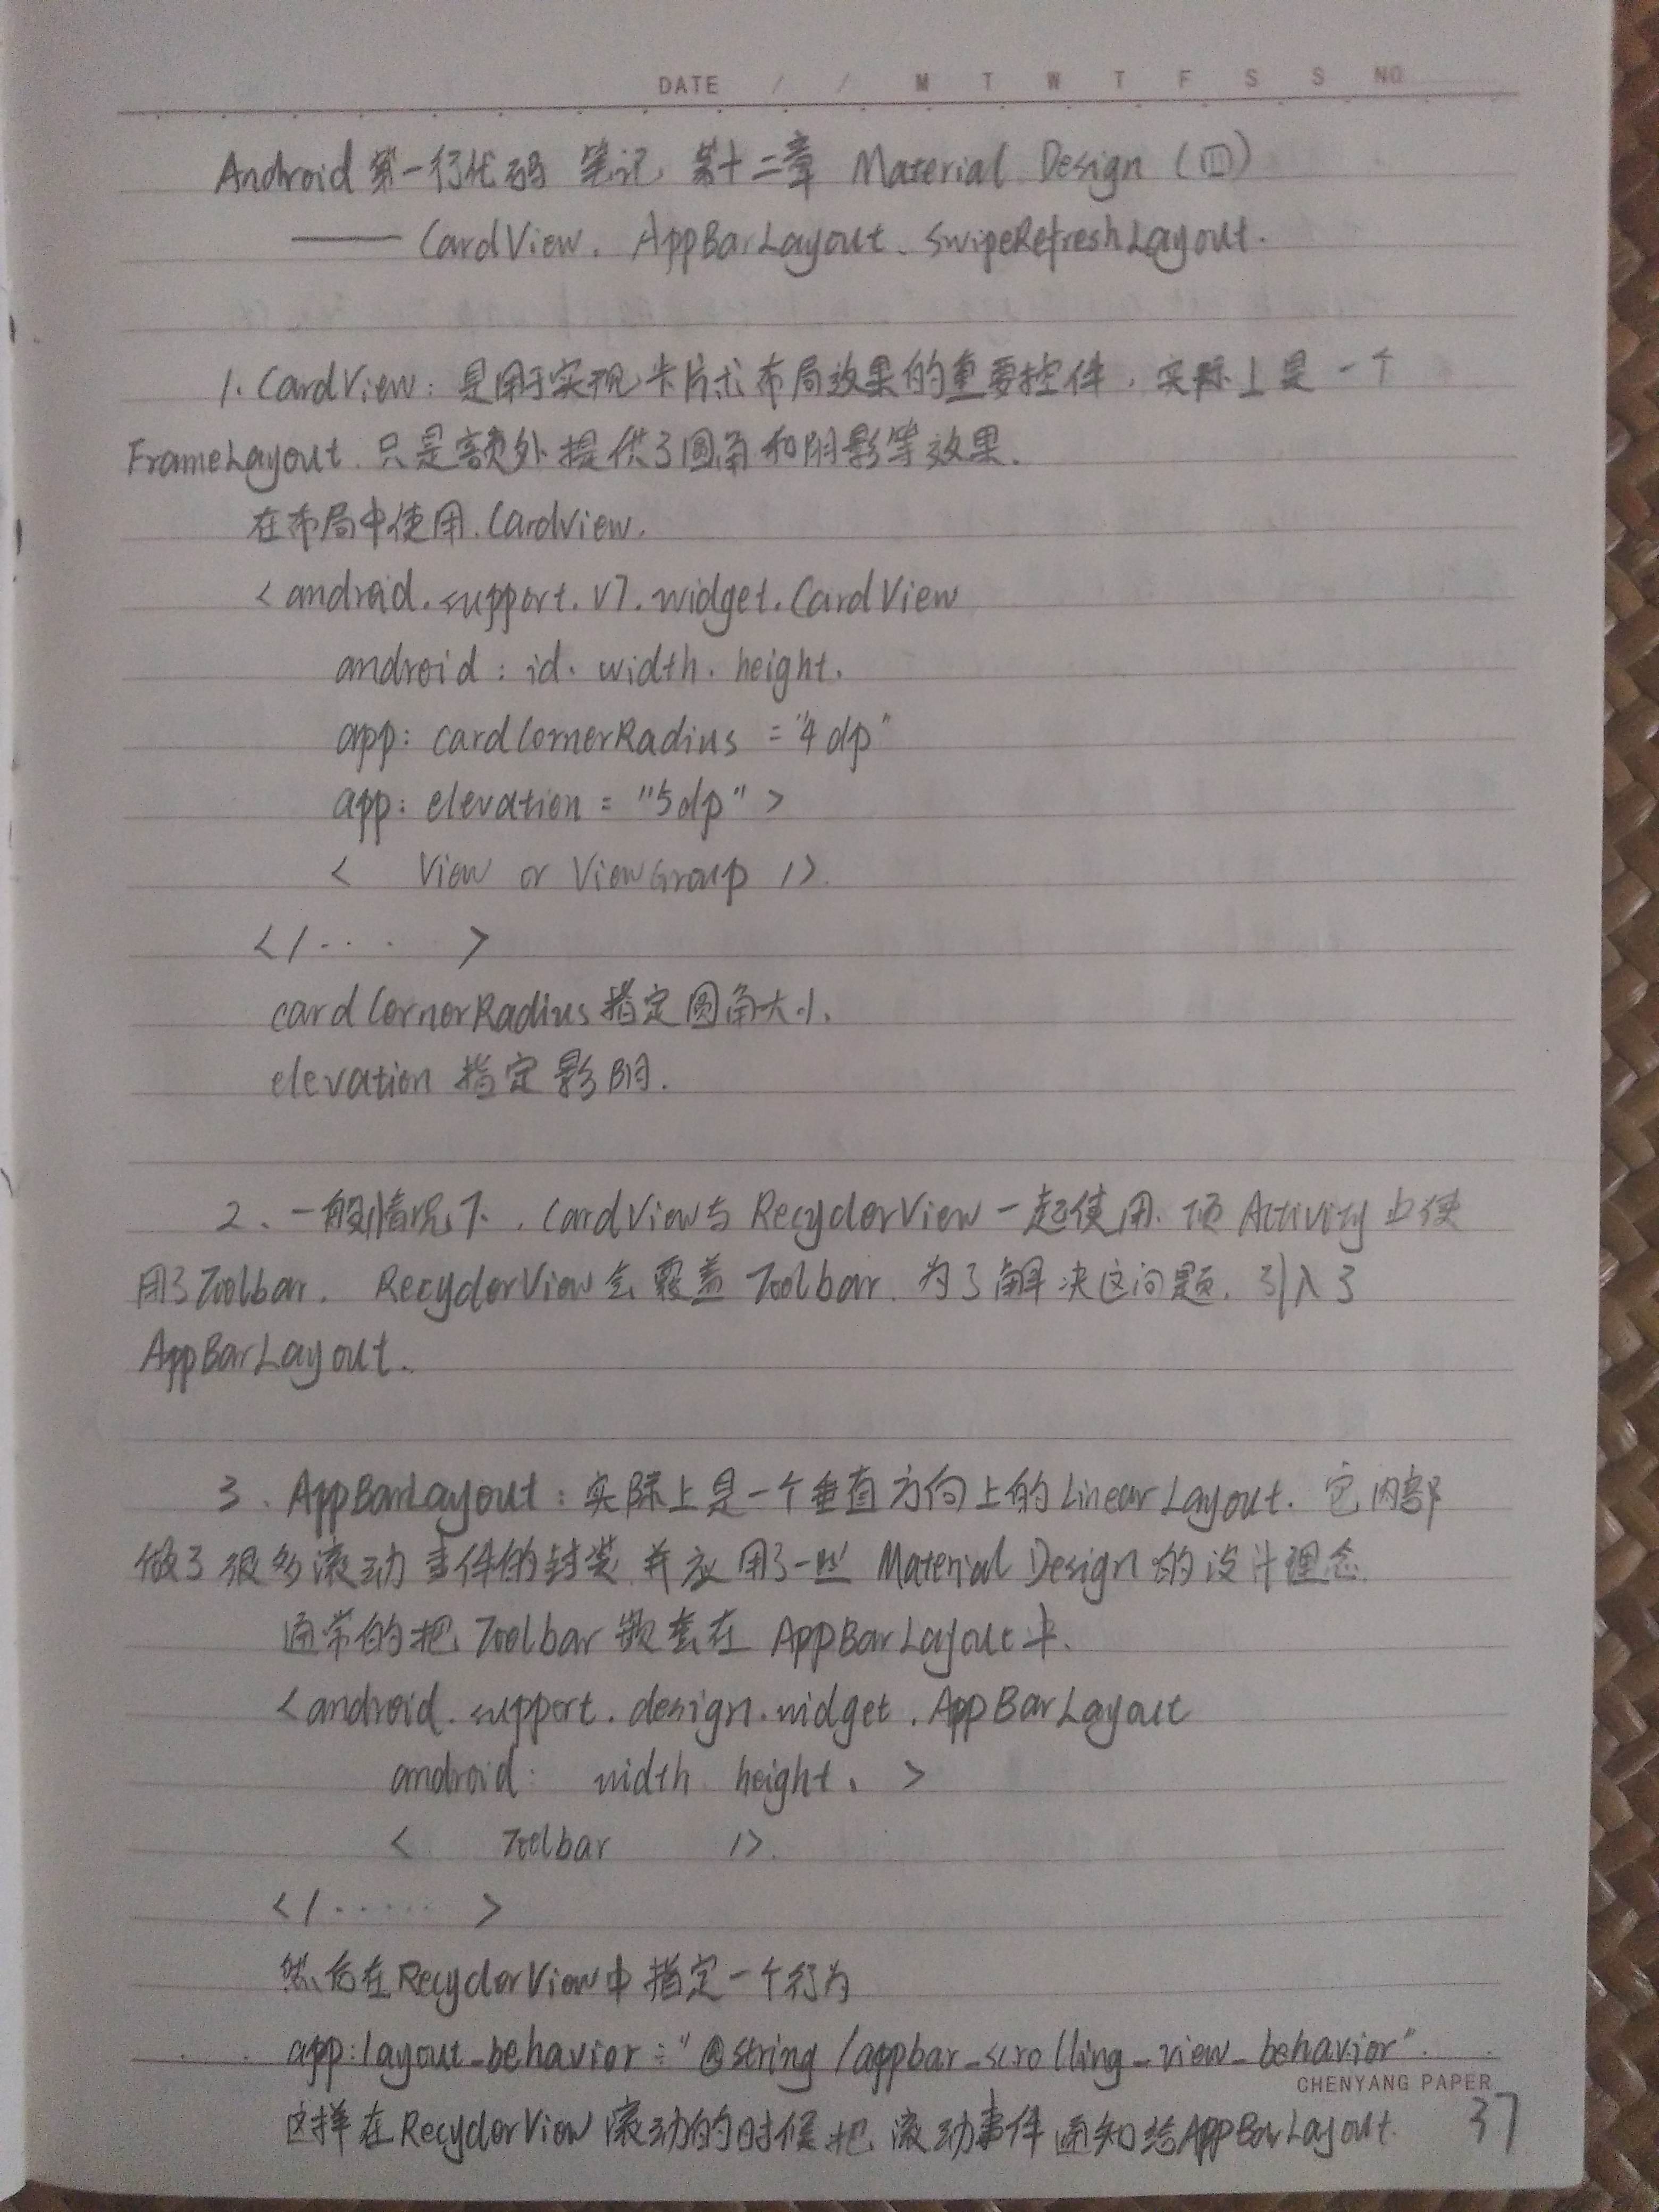 DATE / / M T W T F S S NO
Android 第一行代码 笔记 第十二章 Material Design (四)
—— CardView、AppBarLayout、SwipeRefreshLayout.
1. CardView: 是用于实现卡片式布局效果的重要控件, 实际上是一个
FrameLayout. 只是额外提供了圆角和阴影等效果.
在布局中使用.CardView.
<android.support.v7.widget.CardView
android: id. width. height.
app: cardCornerRadius = "4dp"
app: elevation = "5dp" >
< View or ViewGroup />
</.... >
cardCornerRadius 指定圆角大小.
elevation 指定影阴.
2、一般情况下, CardView与RecyclerView一起使用. 顶 Activity 也使
用了Toolbar. RecyclerView会覆盖Toolbar. 为了解决这问题. 引入了
AppBarLayout.
3、AppBarLayout: 实际上是一个垂直方向上的LinearLayout. 它内部
做了很多滚动事件的封装.并应用了一些 Material Design 的设计理念
通常的把 Toolbar 嵌套在 AppBarLayout中.
<android.support.design.widget.AppBarLayout
android: width height. >
< Toolbar />
</...... >
然后在RecyclerView中指定一个行为
app:layout_behavior="@string/appbar_scrolling_view_behavior".
CHENYANG PAPER
这样在RecyclerView滚动的时候把 滚动事件通知给AppBarLayout.
37